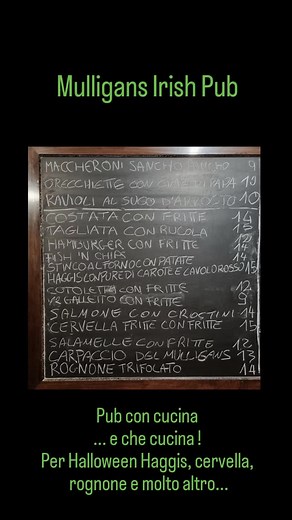 Mulligans Irish Pub
MACCHERONI SANCHO 9
ORECCHIETTE CON 10
RAVIOLI AL SUGO D'ARROSTO 10
COSTATA CON FRITTE 14
TAGLIATA CON RUCOLA 15
HAMBURGER CON FRITTE 12
FISH 'N CHIPS 14
STINCO AL FORNO CON PATATE 14
HAGGIS CON PURE DI CAROTE E CAVOLO ROSSO 15
COTOLETTA CON FRITTE 12
GALLETTO CON FRITTE 9
SALMONE CON CROSTINI 14
CERVELLA FRITTE CON FRITTE 15
SALAMELLE CON FRITTE 12
CARPACCIO DEL MULLIGANS 13
ROGNONE TRIFOLATO 14
Pub con cucina
... e che cucina !
Per Halloween Haggis, cervella,
rognone e molto altro...